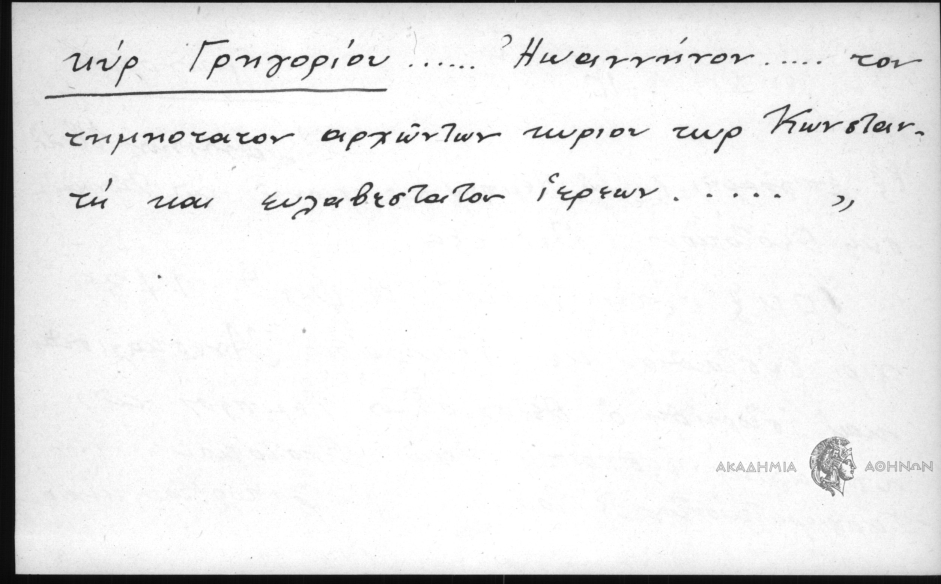 κύρ Γρηγορίου ...... Ἡωαννήνον ..... τον
τημηοτατον αρχῶντων κυριου κυρ Κωνσταν-
τή και ευλαβεστατον ἱερεων ..... „
ΑΚΑΔΗΜΙΑ ΑΘΗΝΩΝ